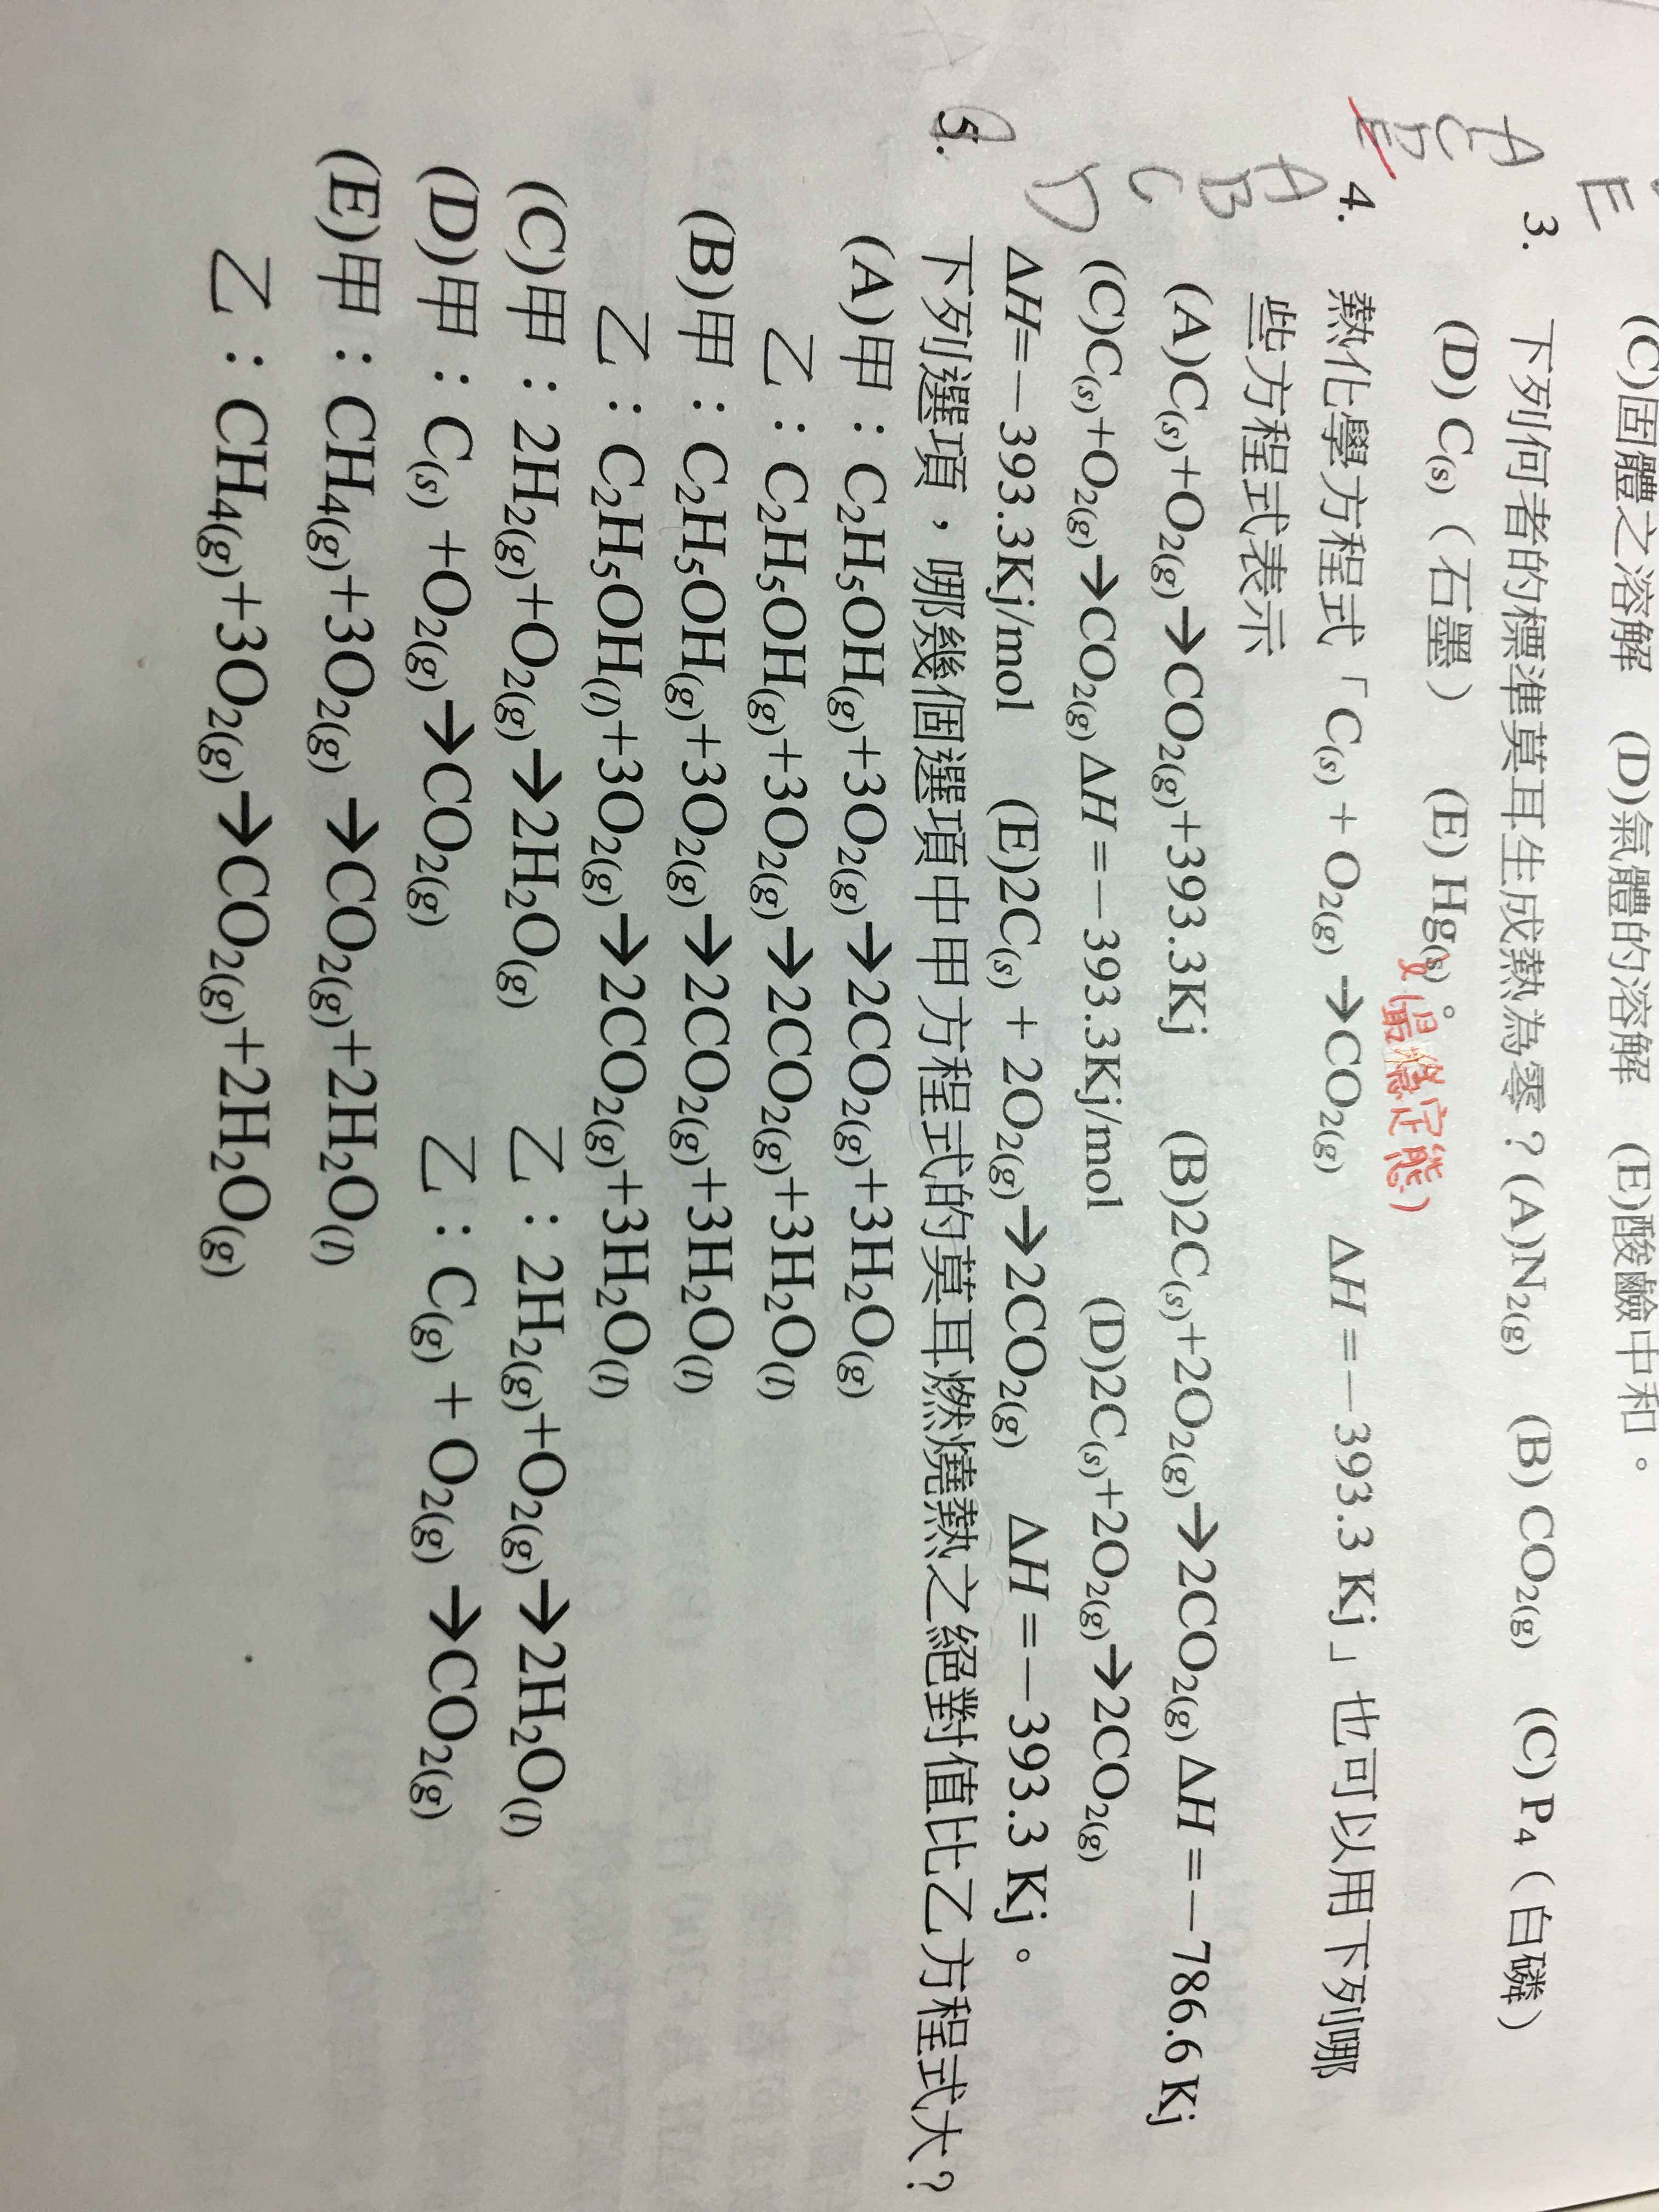 (C)固體之溶解　(D)氣體的溶解　(E)酸鹼中和。
E
3. 下列何者的標準莫耳生成熱為零？(A)N₂(g)　(B) CO₂(g)　(C) P₄（白磷）
A C D E
(D) C(s)（石墨）　(E) Hg(s)。
(最穩定態)
4. 熱化學方程式「C(s) + O₂(g) →CO₂(g)　ΔH =－393.3 Kj」也可以用下列哪
些方程式表示
A B C D
(A)C(s)+O₂(g)→CO₂(g)+393.3Kj　(B)2C(s)+2O₂(g)→2CO₂(g) ΔH =－786.6 Kj
(C)C(s)+O₂(g)→CO₂(g) ΔH =－393.3Kj/mol　(D)2C(s)+2O₂(g)→2CO₂(g)
ΔH=－393.3Kj/mol　(E)2C(s) + 2O₂(g)→2CO₂(g)　ΔH =－393.3 Kj。
5. 下列選項，哪幾個選項中甲方程式的莫耳燃燒熱之絕對值比乙方程式大？
(A)甲：C₂H₅OH(g)+3O₂(g)→2CO₂(g)+3H₂O(g)
乙：C₂H₅OH(g)+3O₂(g)→2CO₂(g)+3H₂O(l)
(B)甲：C₂H₅OH(g)+3O₂(g)→2CO₂(g)+3H₂O(l)
乙：C₂H₅OH(l)+3O₂(g)→2CO₂(g)+3H₂O(l)
(C)甲：2H₂(g)+O₂(g)→2H₂O(g)　乙：2H₂(g)+O₂(g)→2H₂O(l)
(D)甲：C(s) +O₂(g)→CO₂(g)　乙：C(g) + O₂(g) →CO₂(g)
(E)甲：CH₄(g)+3O₂(g) →CO₂(g)+2H₂O(l)
乙：CH₄(g)+3O₂(g)→CO₂(g)+2H₂O(g)